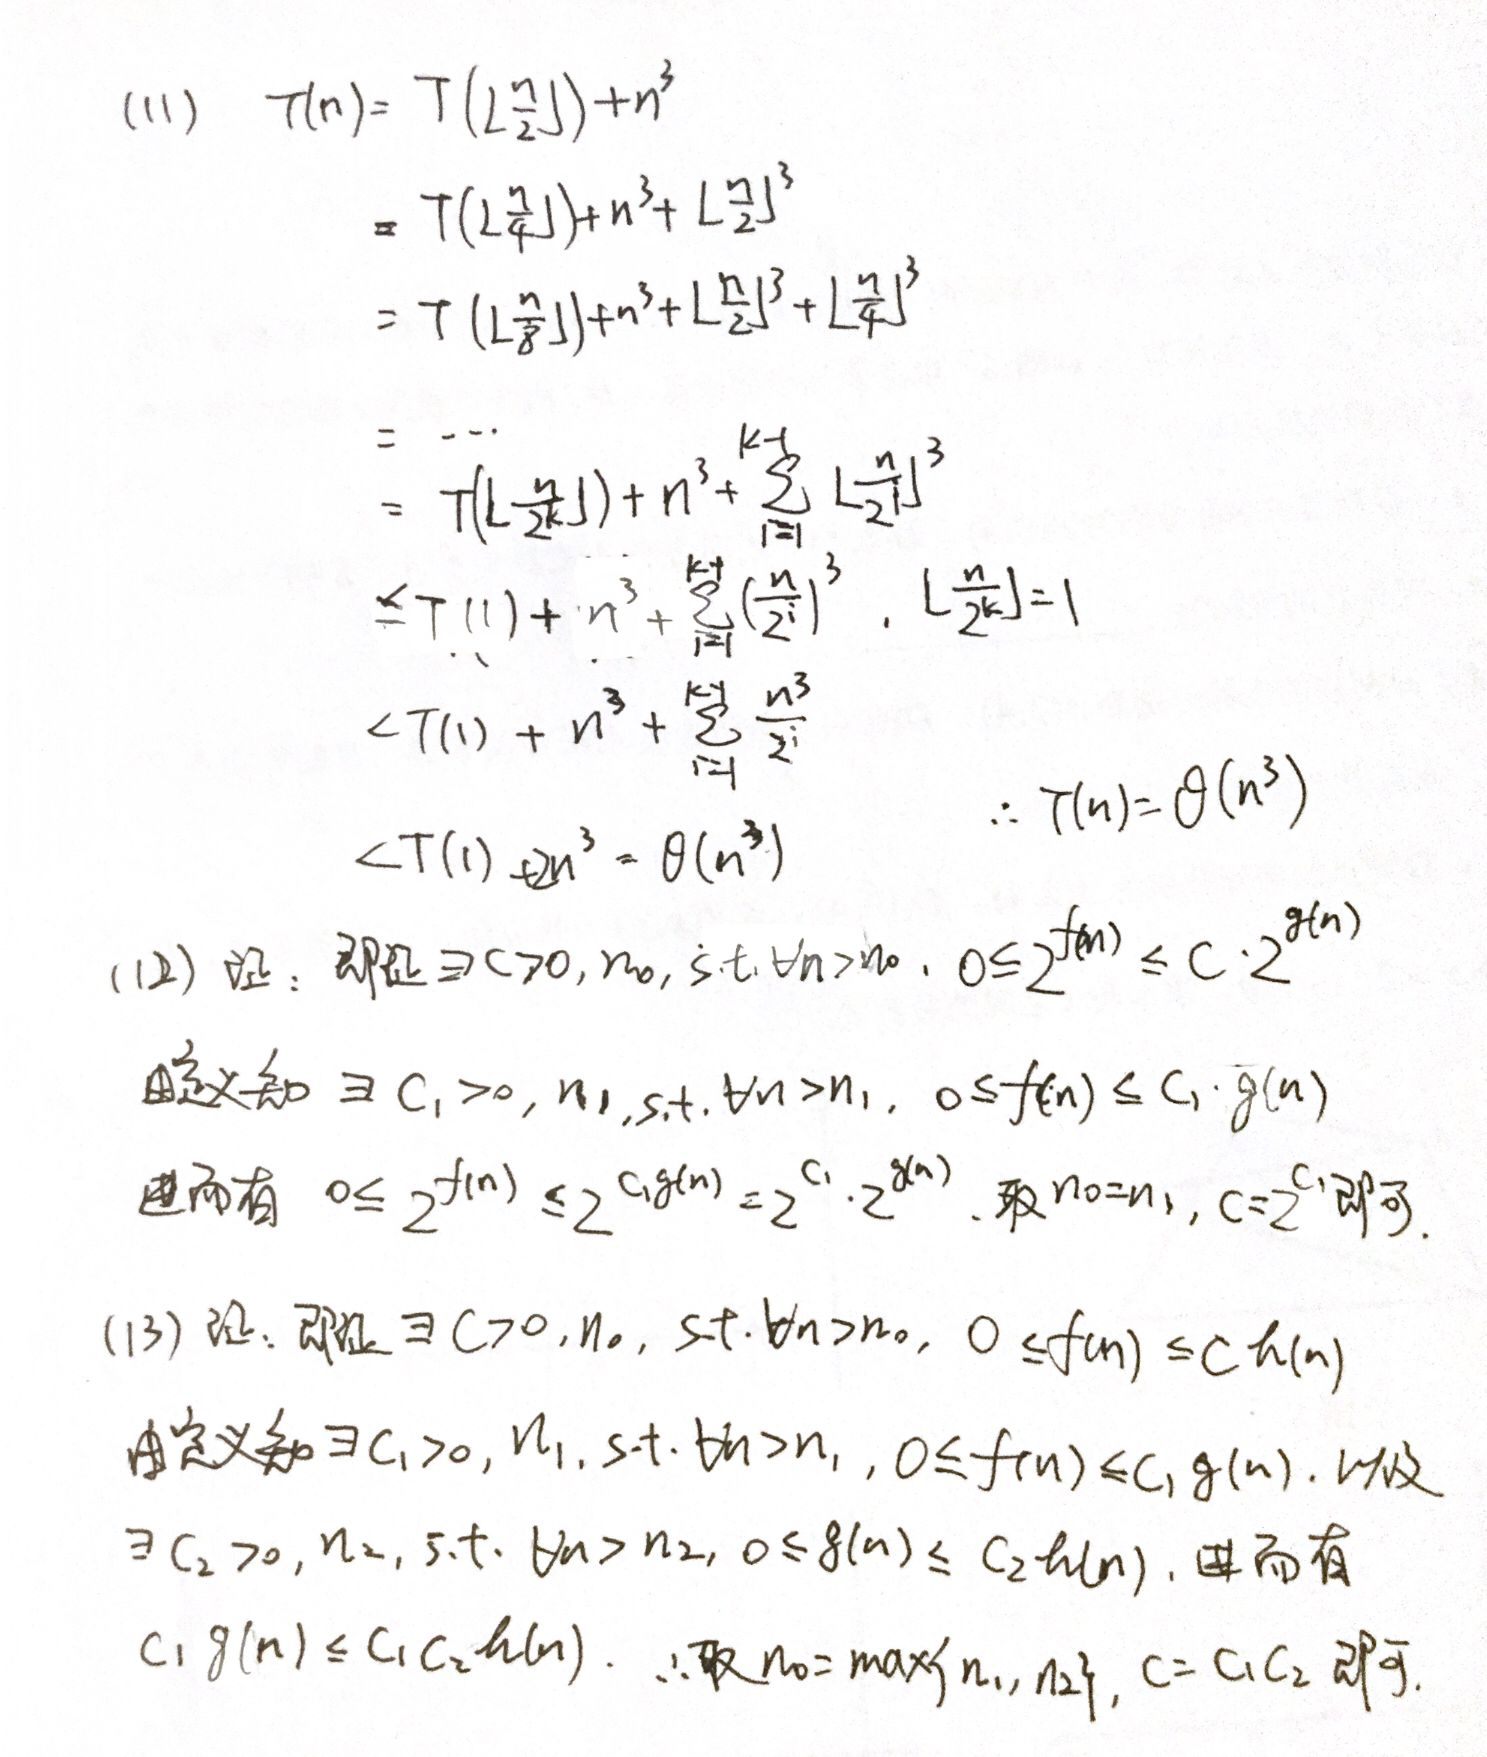 (11) T(n) = T(⌊n/2⌋) + n³
= T(⌊n/4⌋) + n³ + ⌊n/2⌋³
= T(⌊n/8⌋) + n³ + ⌊n/2⌋³ + ⌊n/4⌋³
= ...
= T(⌊n/2^k⌋) + n³ + ∑_{i=1}^{k-1} ⌊n/2^i⌋³
≤ T(1) + n³ + ∑_{i=1}^{k-1} (n/2^i)³ , ⌊n/2^k⌋ = 1
< T(1) + n³ + ∑_{i=1}^{k-1} n³/2^i
< T(1) + 2n³ = θ(n³) ∴ T(n) = θ(n³)
(12) 证: 即证 ∃ C>0, n₀, s.t. ∀n>n₀, 0 ≤ 2^{f(n)} ≤ C·2^{g(n)}
由定义知 ∃ C₁>0, n₁, s.t. ∀n>n₁, 0≤f(n) ≤ C₁·g(n)
进而有 0≤ 2^{f(n)} ≤ 2^{C₁g(n)} = 2^{C₁}·2^{g(n)}. 取 n₀=n₁, C=2^{C₁} 即可.
(13) 证: 即证 ∃ C>0, n₀, s.t. ∀n>n₀, 0 ≤f(n) ≤ C h(n)
由定义知 ∃ C₁>0, n₁, s.t. ∀n>n₁, 0≤f(n) ≤C₁ g(n). 以及
∃ C₂>0, n₂, s.t. ∀n>n₂, 0≤g(n)≤ C₂h(n), 进而有
C₁g(n) ≤ C₁C₂h(n). ∴取 n₀=max{n₁, n₂}, C= C₁C₂ 即可.